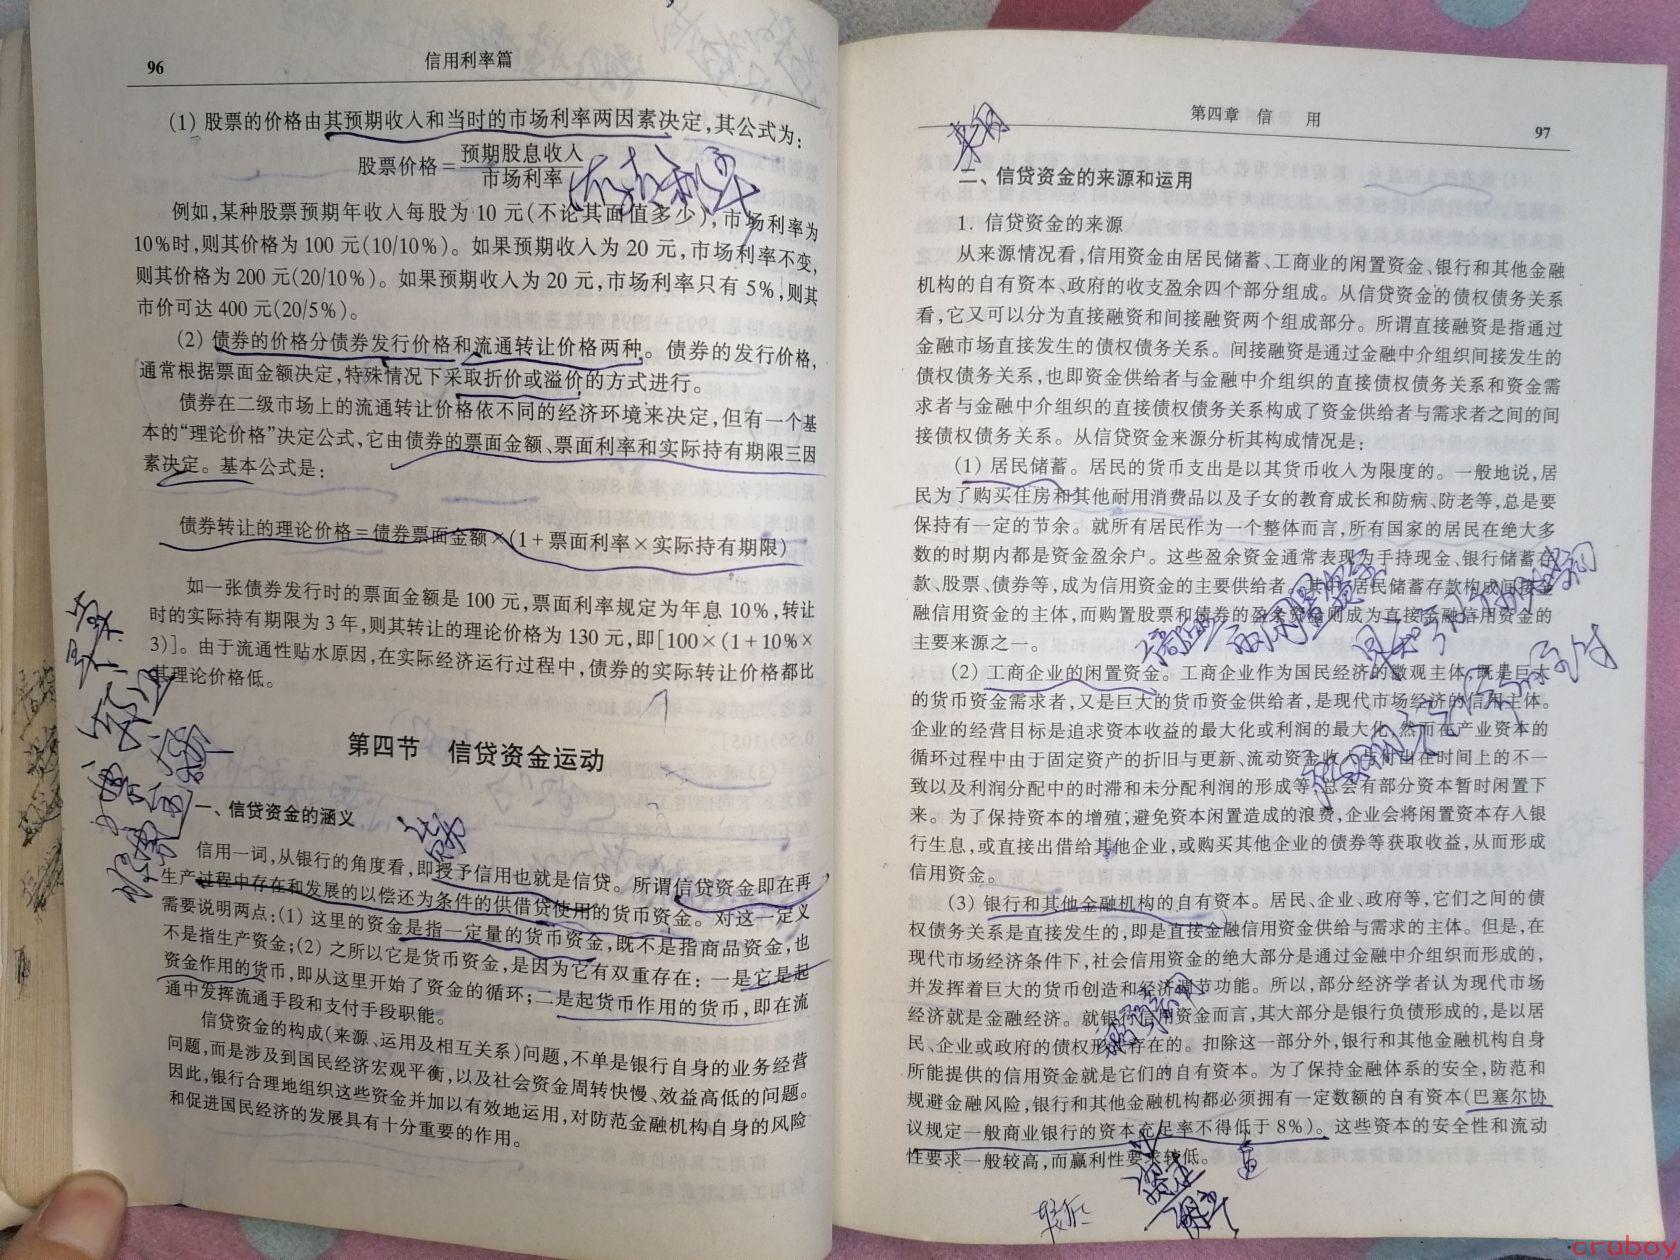 96
信用利率篇
(1) 股票的价格由其预期收入和当时的市场利率两因素决定,其公式为:
股票价格=预期股息收入/市场利率
例如,某种股票预期年收入每股为 10 元(不论其面值多少),市场利率为
10%时,则其价格为 100 元(10/10%)。如果预期收入为 20 元,市场利率不变,
则其价格为 200 元(20/10%)。如果预期收入为 20 元,市场利率只有 5%,则其
市价可达 400 元(20/5%)。
(2) 债券的价格分债券发行价格和流通转让价格两种。债券的发行价格,
通常根据票面金额决定,特殊情况下采取折价或溢价的方式进行。
债券在二级市场上的流通转让价格依不同的经济环境来决定,但有一个基
本的“理论价格”决定公式,它由债券的票面金额、票面利率和实际持有期限三因
素决定。基本公式是:
债券转让的理论价格=债券票面金额×(1+票面利率×实际持有期限)
如一张债券发行时的票面金额是 100 元,票面利率规定为年息 10%,转让
时的实际持有期限为 3 年,则其转让的理论价格为 130 元,即[100×(1+10%×
3)]。由于流通性贴水原因,在实际经济运行过程中,债券的实际转让价格都比
其理论价格低。
第四节 信贷资金运动
一、信贷资金的涵义
信用一词,从银行的角度看,即授予信用也就是信贷。所谓信贷资金即在再
生产过程中存在和发展的以偿还为条件的供借贷使用的货币资金。对这一定义
需要说明两点:(1) 这里的资金是指一定量的货币资金,既不是指商品资金,也
不是指生产资金;(2) 之所以它是货币资金,是因为它有双重存在: 一是它是起
资金作用的货币,即从这里开始了资金的循环;二是起货币作用的货币,即在流
通中发挥流通手段和支付手段职能。
信贷资金的构成(来源、运用及相互关系)问题,不单是银行自身的业务经营
问题,而是涉及到国民经济宏观平衡,以及社会资金周转快慢、效益高低的问题。
因此,银行合理地组织这些资金并加以有效地运用,对防范金融机构自身的风险
和促进国民经济的发展具有十分重要的作用。
第四章 信 用
97
二、信贷资金的来源和运用
1. 信贷资金的来源
从来源情况看,信用资金由居民储蓄、工商业的闲置资金、银行和其他金融
机构的自有资本、政府的收支盈余四个部分组成。从信贷资金的债权债务关系
看,它又可以分为直接融资和间接融资两个组成部分。所谓直接融资是指通过
金融市场直接发生的债权债务关系。间接融资是通过金融中介组织间接发生的
债权债务关系,也即资金供给者与金融中介组织的直接债权债务关系和资金需
求者与金融中介组织的直接债权债务关系构成了资金供给者与需求者之间的间
接债权债务关系。从信贷资金来源分析其构成情况是:
(1) 居民储蓄。居民的货币支出是以其货币收入为限度的。一般地说,居
民为了购买住房和其他耐用消费品以及子女的教育成长和防病、防老等,总是要
保持有一定的节余。就所有居民作为一个整体而言,所有国家的居民在绝大多
数的时期内都是资金盈余户。这些盈余资金通常表现为手持现金、银行储蓄存
款、股票、债券等,成为信用资金的主要供给者。其中居民储蓄存款构成间接金
融信用资金的主体,而购置股票和债券的盈余资金则成为直接金融信用资金的
主要来源之一。
(2) 工商企业的闲置资金。工商企业作为国民经济的微观主体,既是巨大
的货币资金需求者,又是巨大的货币资金供给者,是现代市场经济的信用主体。
企业的经营目标是追求资本收益的最大化或利润的最大化,然而在产业资本的
循环过程中由于固定资产的折旧与更新、流动资金收入与付出在时间上的不一
致以及利润分配中的时滞和未分配利润的形成等,总会有部分资本暂时闲置下
来。为了保持资本的增殖,避免资本闲置造成的浪费,企业会将闲置资本存入银
行生息,或直接出借给其他企业,或购买其他企业的债券等获取收益,从而形成
信用资金。
(3) 银行和其他金融机构的自有资本。居民、企业、政府等,它们之间的债
权债务关系是直接发生的,即是直接金融信用资金供给与需求的主体。但是,在
现代市场经济条件下,社会信用资金的绝大部分是通过金融中介组织而形成的,
并发挥着巨大的货币创造和经济调节功能。所以,部分经济学者认为现代市场
经济就是金融经济。就银行信用资金而言,其大部分是银行负债形成的,是以居
民、企业或政府的债权形式存在的。扣除这一部分外,银行和其他金融机构自身
所能提供的信用资金就是它们的自有资本。为了保持金融体系的安全,防范和
规避金融风险,银行和其他金融机构都必须拥有一定数额的自有资本(巴塞尔协
议规定一般商业银行的资本充足率不得低于 8%)。这些资本的安全性和流动
性要求一般较高,而赢利性要求较低。
cruboy